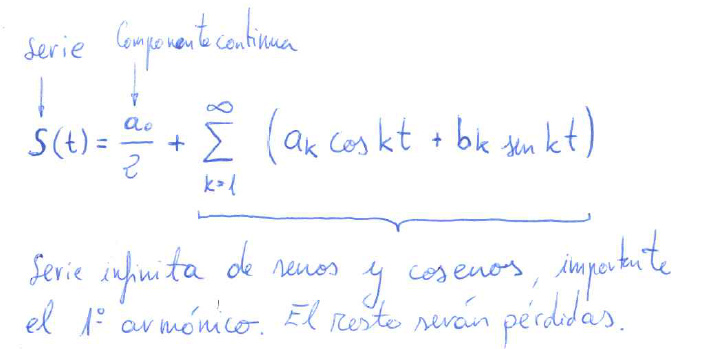 serie Componente continua
S(t) = a₀/2 + ∑_{k=1}^{∞} (aₖ cos kt + bₖ sen kt)
Serie infinita de senos y cosenos, importante
el 1º armónico. El resto serán pérdidas.